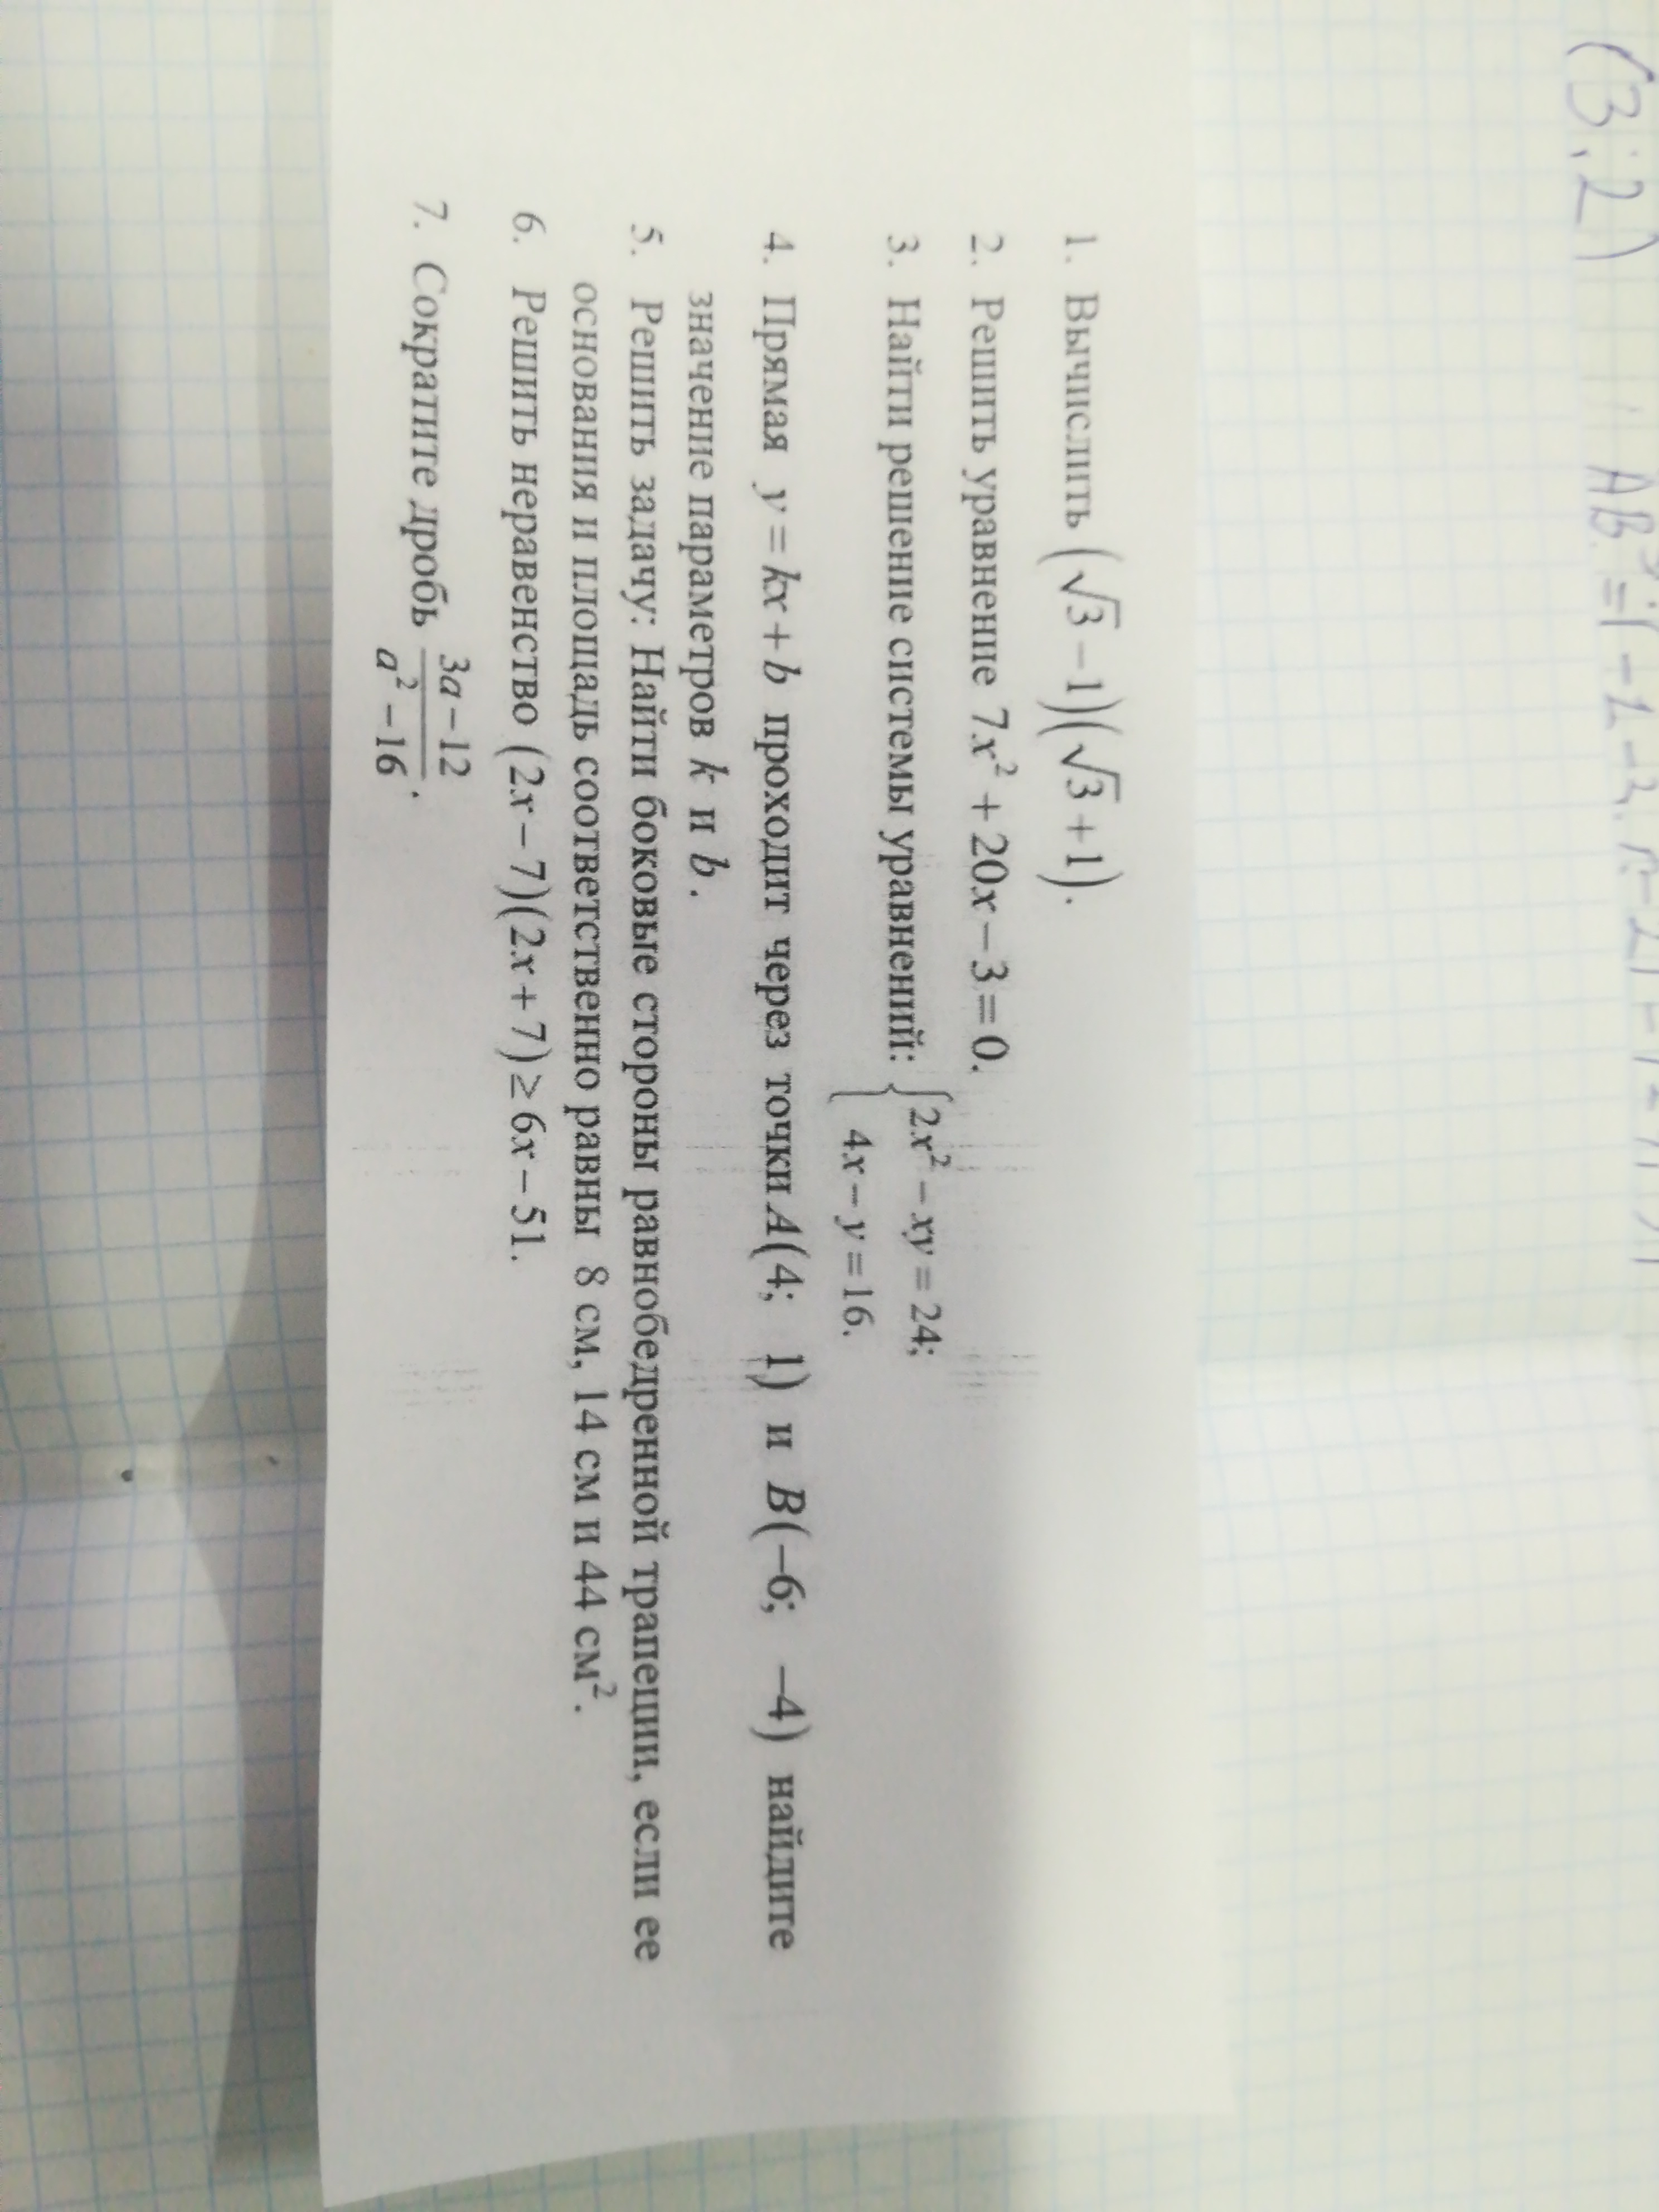 1. Вычислить (√3 – 1)(√3 + 1).
2. Решить уравнение 7x² + 20x – 3 = 0.
3. Найти решение системы уравнений: {2x² – xy = 24;
4x – y = 16.
4. Прямая y = kx + b проходит через точки A(4; 1) и B(–6; –4) найдите
значение параметров k и b.
5. Решить задачу: Найти боковые стороны равнобедренной трапеции, если ее
основания и площадь соответственно равны 8 см, 14 см и 44 см².
6. Решить неравенство (2x – 7)(2x + 7) ≥ 6x – 51.
7. Сократите дробь (3a – 12)/(a² – 16).